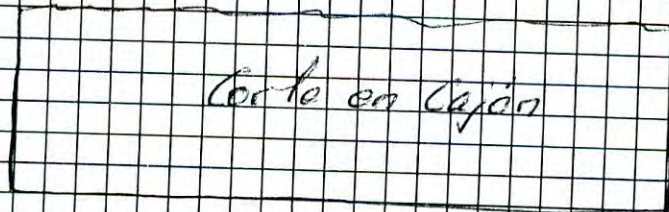 Corte en Cajón